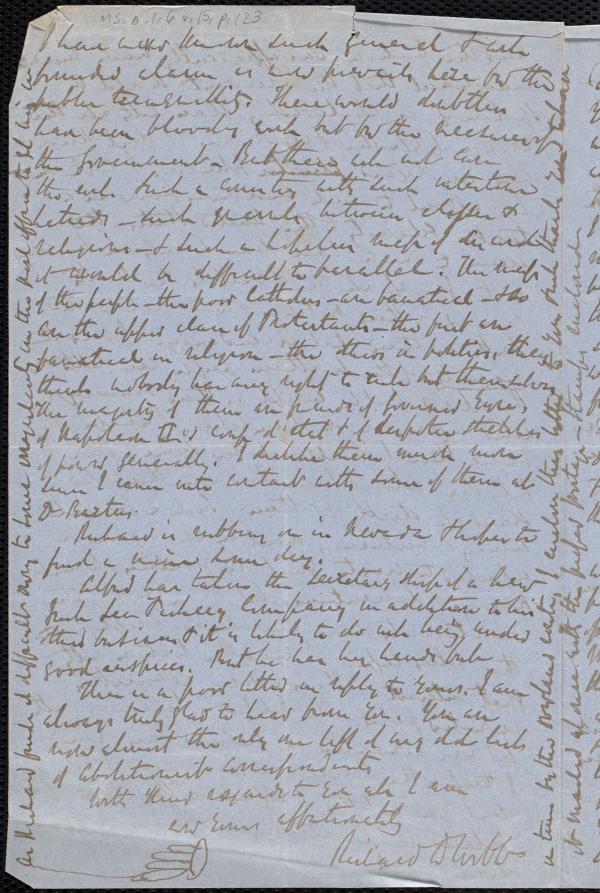 MS. B. 1. 6 v. 15, p. 123
I have never known such general & such
founded alarm as now prevails here for the
public tranquillity. There would doubtless
have been bloody work but for the measures of
the Government. But these will not cure
the evil. Such a country with such intestine
hatreds - such quarrels between classes &
religions - & such a hopeless mass of discord
it would be difficult to parallel. The mass
of the people - the poor Catholics - are fanatical - & so
are the upper class of Protestants - the first are
fanatical in religion - the others in politics, they
think nobody has any right to rule but themselves
The majority of them are friends of Governor Eyre,
of Napoleon III's coup d'etat & of despotic stretches
of power generally. I dislike them much more
since I came into contact with some of them at
Dr
Richard is rubbing on in Nevada & hopes to
find a mine some day.
Alfred has taken the Secretaryship of a new
Irish Sea Fishery Company in addition to his
other business & it is likely to do well being under
good auspices. But he has his hands full.
This is a poor letter in reply to yours. I am
always truly glad to hear from you. You are
now almost the only one left of my old
of abolitionist correspondents
With kind regards to you all I am
ever yours affectionately
Richard D Webb
as Richard finds it difficult owing to some irregularity in the post office to
in turn by the overland route, I enclose this
it marked at once with the prepaid postage - stamps enclosed